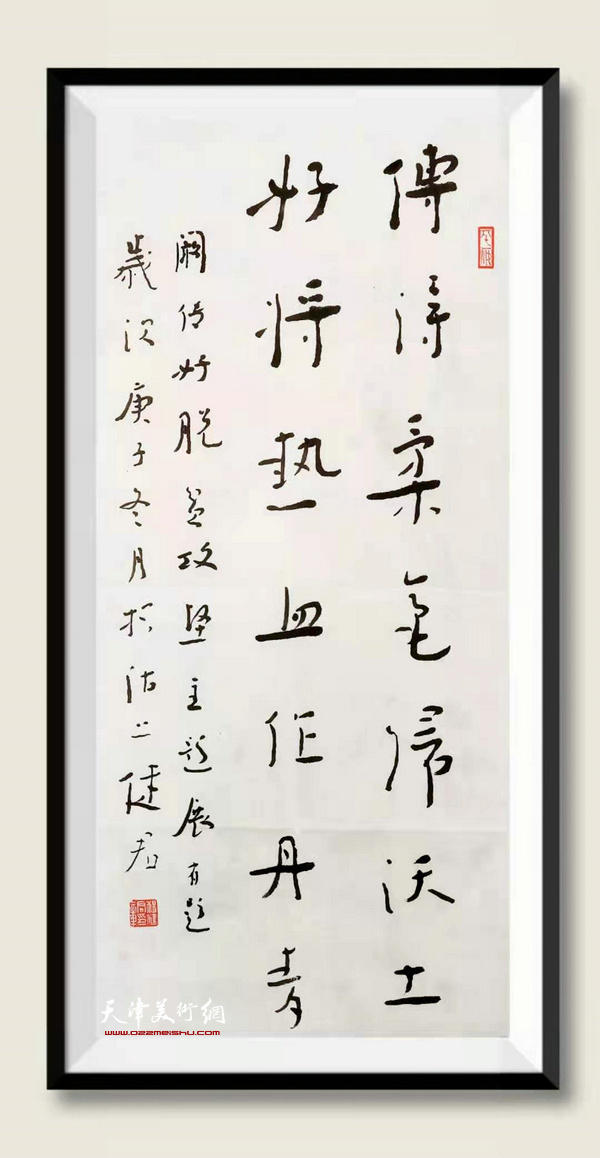 傳得柔毫歸沃土
好將熱血作丹青
阚传好脱贫攻坚主题展有题
歲次庚子冬月於沽上健君
天津美術網
www.022meishu.com